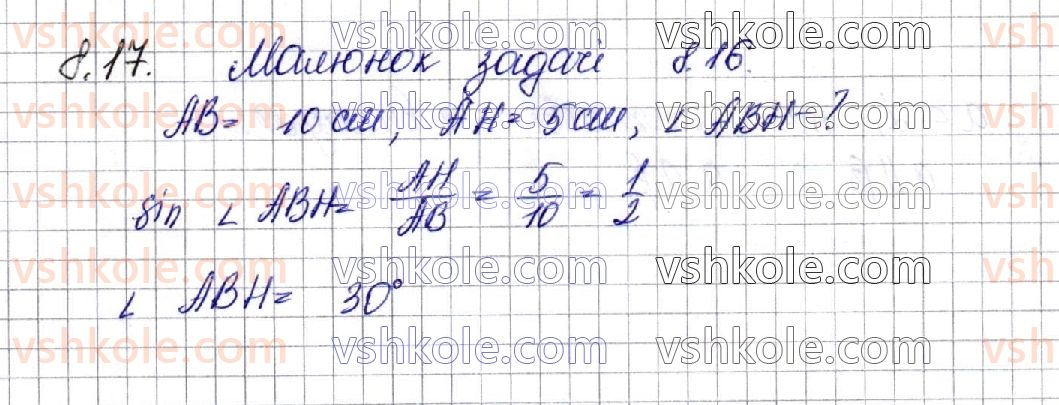 8.17. Малюнок задачі 8.16.
AB = 10 см, AH = 5 см, ∠ ABH - ?
sin ∠ ABH = AH/AB = 5/10 = 1/2
∠ ABH = 30°
vshkole.com vshkole.com vshkole.com vshkole.com
vshkole.com vshkole.com vshkole.com vshkole.com
vshkole.com vshkole.com vshkole.com vshkole.com
vshkole.com vshkole.com vshkole.com vshkole.com
vshkole.com vshkole.com vshkole.com vshkole.com